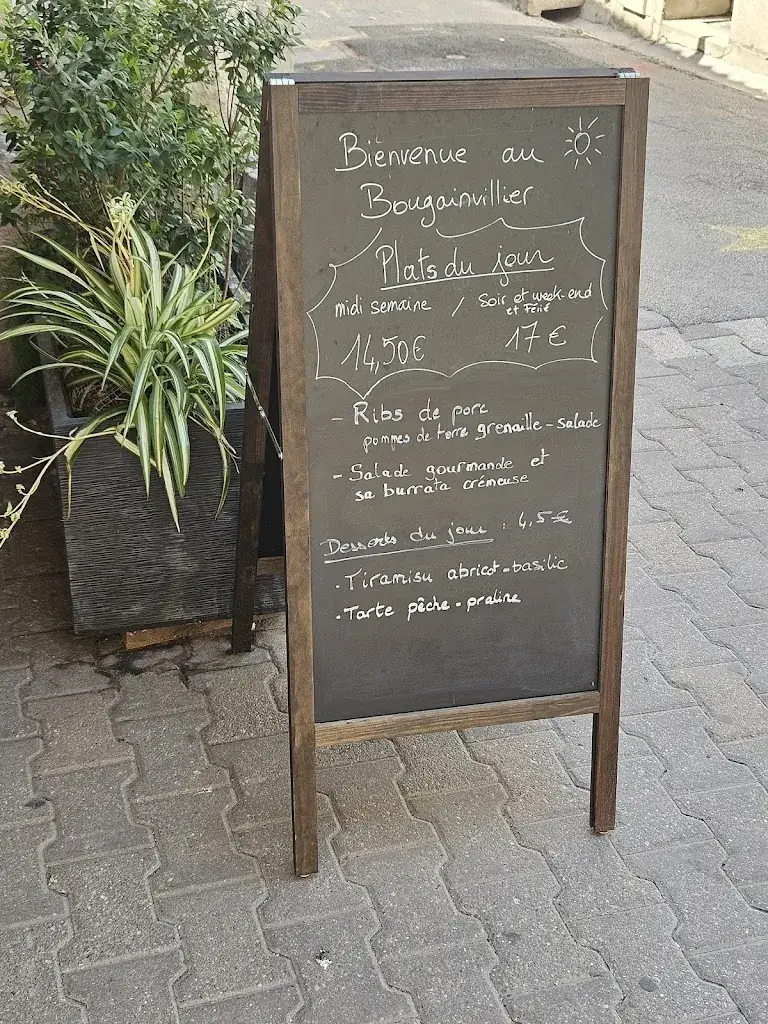 Bienvenue au
Bougainvillier
Plats du jour
midi semaine / Soir et week-end
et Férié
14,50€ 17€
- Ribs de porc
pommes de terre grenaille - salade
- Salade gourmande et
sa burrata crémeuse
Desserts du jour : 4,5€
. Tiramisu abricot-basilic
. Tarte pêche - praline